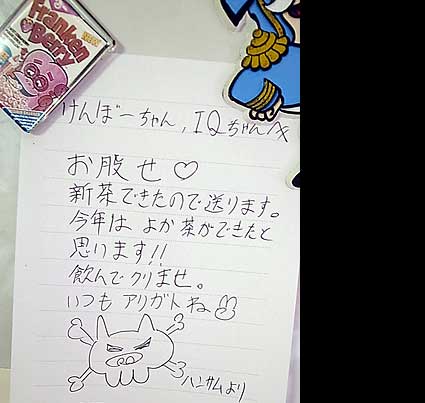 Franken Berry
けんぼーちゃん, IQちゃんへ
お股せ♡
新茶できたので送ります。
今年は よか茶ができたと
思います!!
飲んで クリませ。
いつも アリガトね
ハンサムより